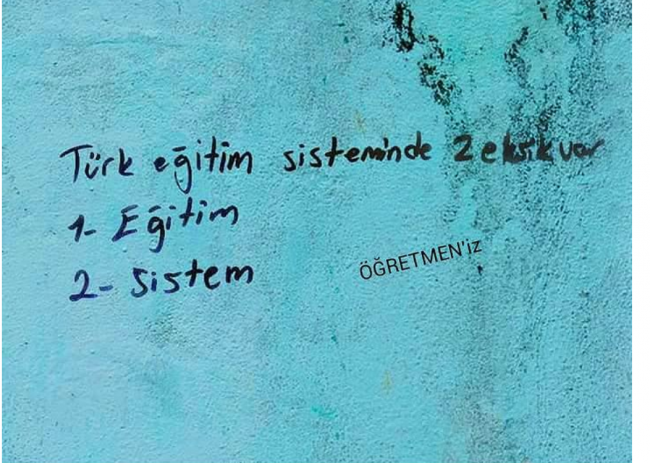 Türk eğitim sisteminde 2 eksik var
1- Eğitim
2- Sistem
ÖĞRETMEN'iz